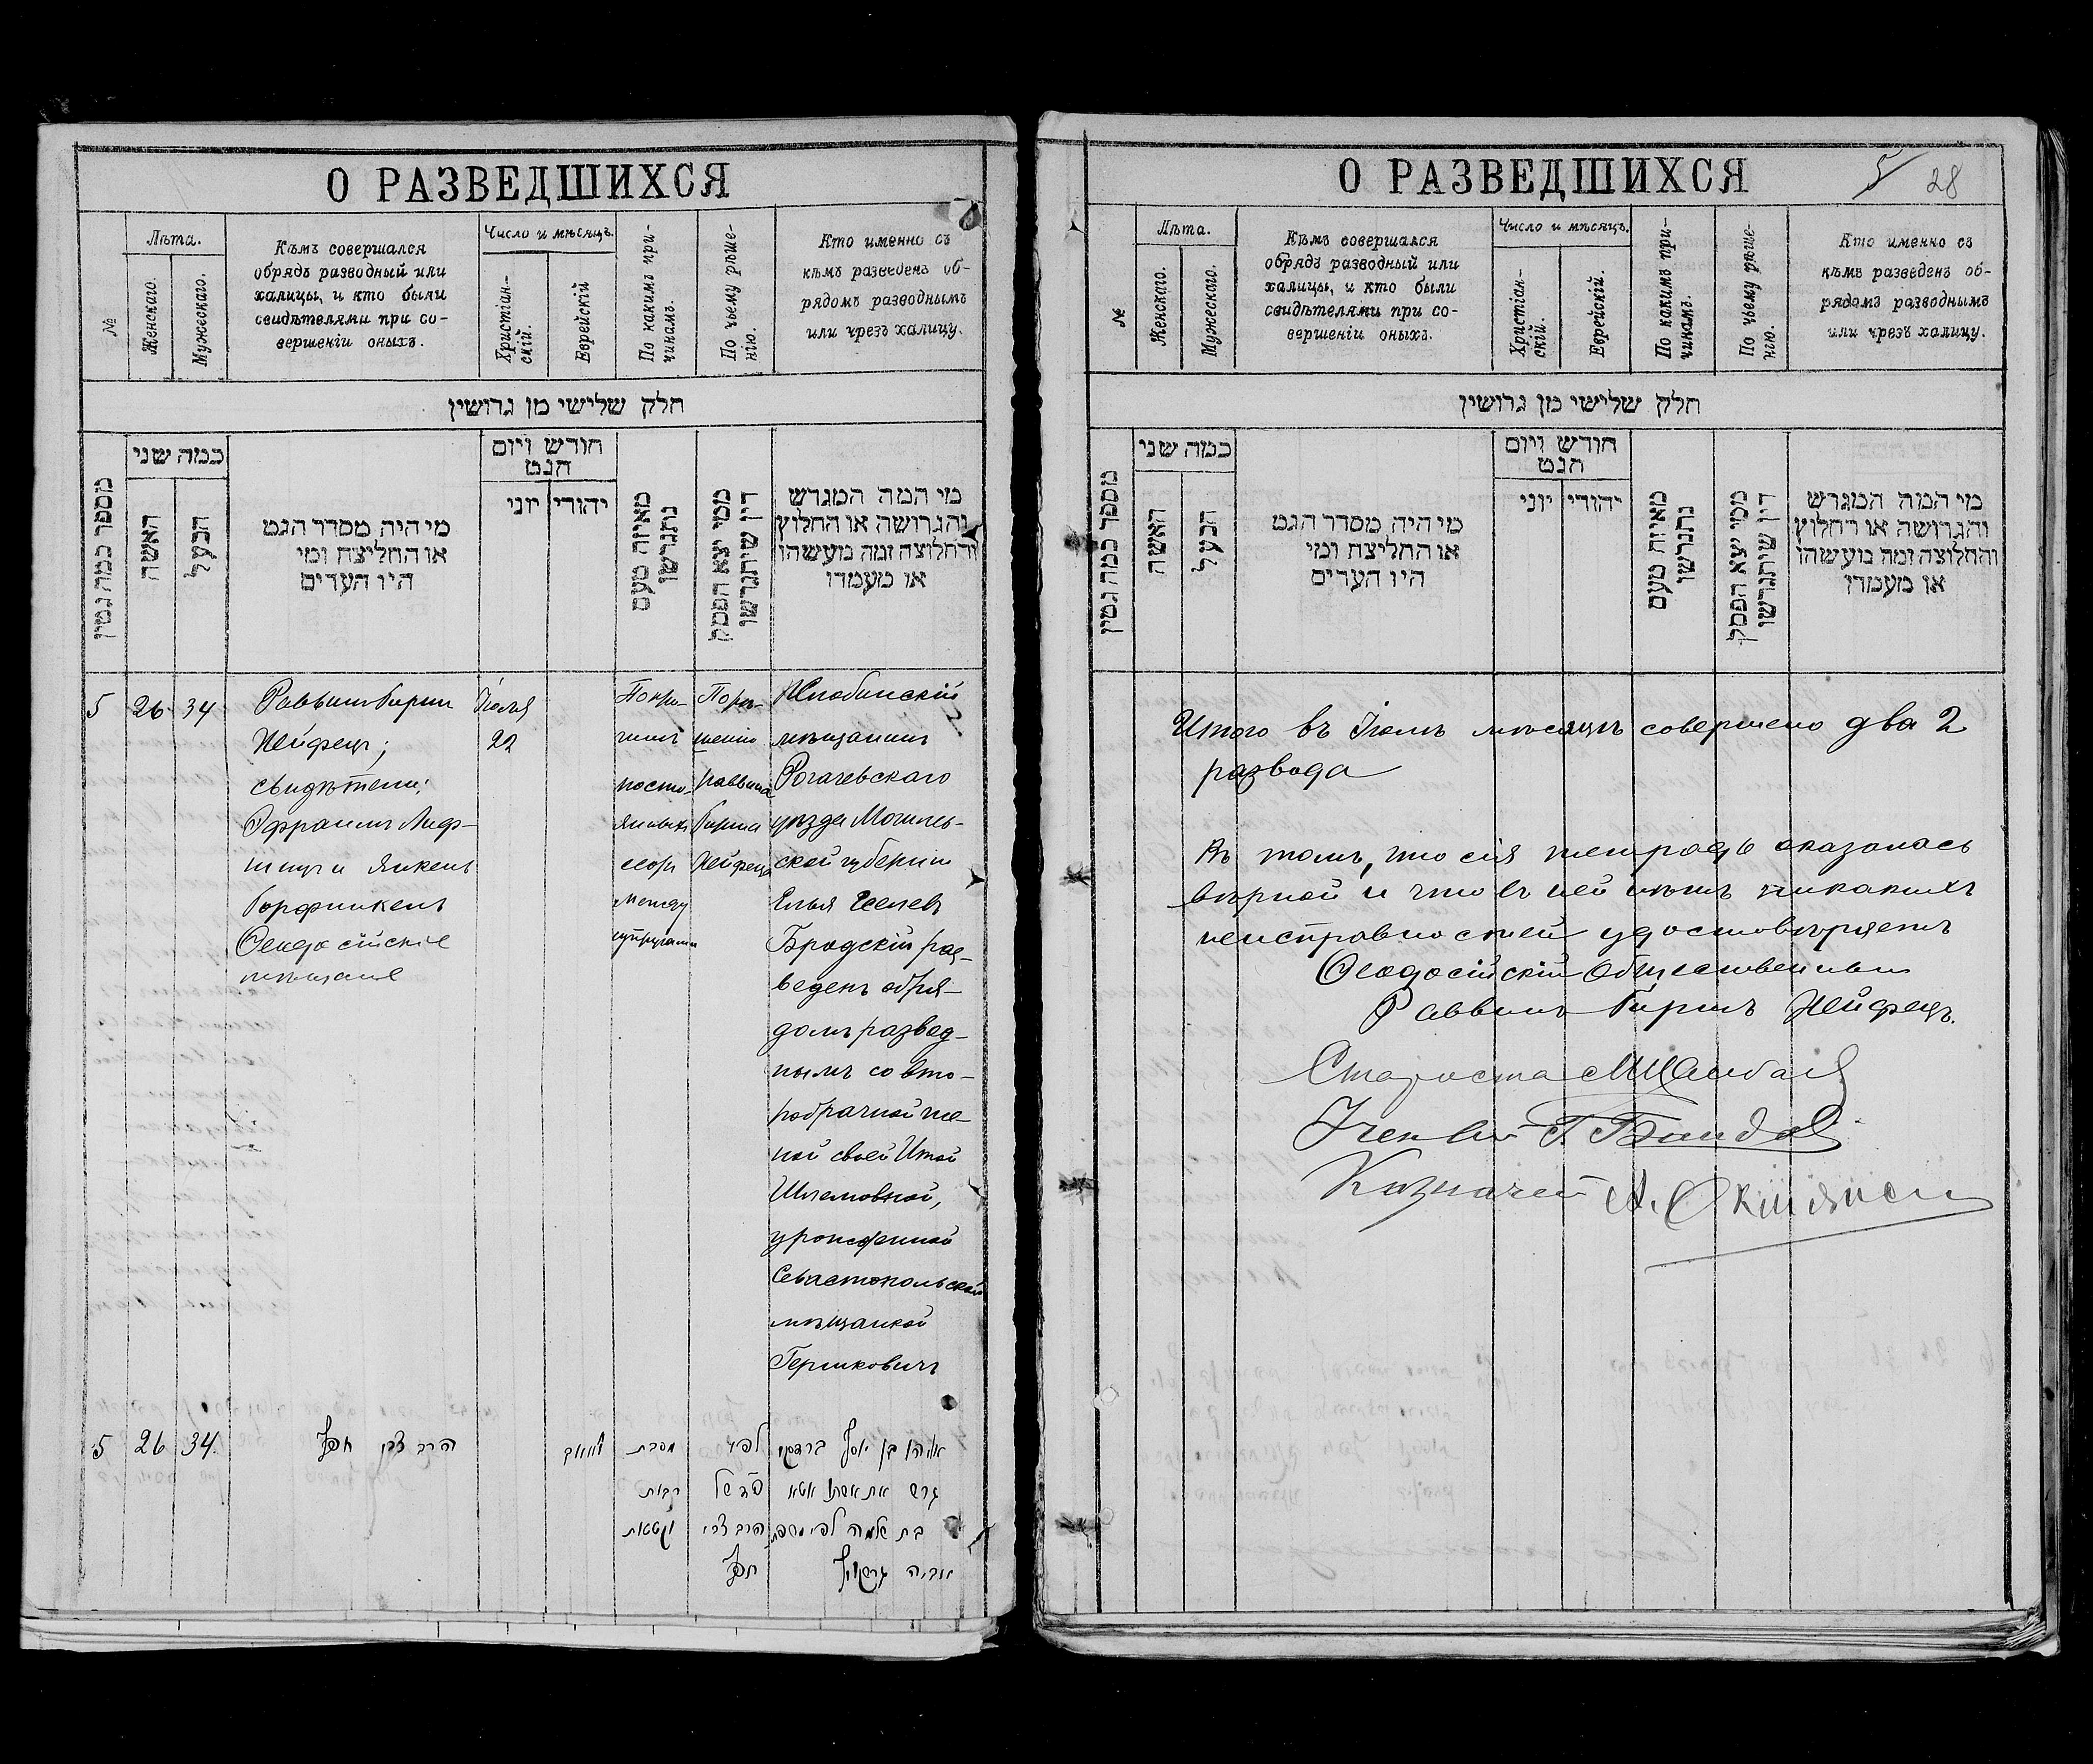 О РАЗВЕДШИХСЯ
№
Лѣта.
Женскаго.
Мужескаго.
Кѣмъ совершался
обрядъ разводный или
халицы, и кто были
свидѣтелями при со-
вершеніи оныхъ.
Число и мѣсяцъ.
Христіан-
скій.
Еврейскій
По какимъ при-
чинамъ.
По чьему рѣше-
нію.
Кто именно съ
кѣмъ разведенъ об-
рядомъ разводнымъ
или чрезъ халицу.
חלק שלישי מן גרושין
מספר כמה גטין
כמה שני
האשה
הבעל
מי היה מסדר הגט
או החליצה ומי
היו העדים
חודש ויום
הגט
יהודי
יוני
מאיזה טעם
נתגרשו
ממי יצא הפסק
דין שיתגרשו
מי המה המגרש
והגרושה או החלוץ
והחלוצה ומה מעשהו
או מעמדו
5
26
34
Раввинъ Гирш
Хейфецъ;
свидѣтели:
Эфраимъ Лиф-
шицъ и Янкель
Горфинкель
Ѳеодосійскіе
мѣщане
Іюля
22
По при-
чинѣ
посто-
янныхъ
ссоръ
между
супругами
По рѣ-
шенію
раввина
Гирша
Хейфеца
Жлобинскій
мѣщанинъ
Рогачевскаго
уѣзда Могилев-
ской губерніи
Илья
Бродскій раз-
веденъ обря-
домъ развод-
нымъ со вто-
робрачной же-
ной своей Итой
Шлемовной,
урожденной
Севастопольской
мѣщанкой
Гершковичъ
5
26
34.
הרב צבי חפץ
מסבת
רבות
וקטטות
לפי
פסד של
הרב צבי
חפץ
אליהו בן יוסף ברדסקי
גרש את אשתו איטא
בת שלמה לפי משפחת
אביה
О РАЗВЕДШИХСЯ
5
28
№
Лѣта.
Женскаго.
Мужескаго.
Кѣмъ совершался
обрядъ разводный или
халицы, и кто были
свидѣтелями при со-
вершеніи оныхъ.
Число и мѣсяцъ.
Христіан-
скій.
Еврейскій.
По какимъ при-
чинамъ.
По чьему рѣше-
нію.
Кто именно съ
кѣмъ разведенъ об-
рядомъ разводнымъ
или чрезъ халицу.
חלק שלישי מן גרושין
מספר כמה גטין
כמה שני
האשה
הבעל
מי היה מסדר הגט
או החליצה ומי
היו העדים
חודש ויום
הגט
יהודי
יוני
מאיזה טעם
נתגרשו
ממי יצא הפסק
דין שיתגרשו
מי המה המגרש
והגרושה או החלוץ
והחלוצה ומה מעשהו
או מעמדו
Итого въ Іюлѣ мѣсяцѣ совершено два 2
развода
Въ томъ, что сія тетрадь оказалась
вѣрной и что въ ней нѣтъ никакихъ
неисправностей удостовѣряетъ
Ѳеодосійскій Общественный
Раввинъ Гиршъ Хейфецъ.
Староста
Ученый
Казначей А.